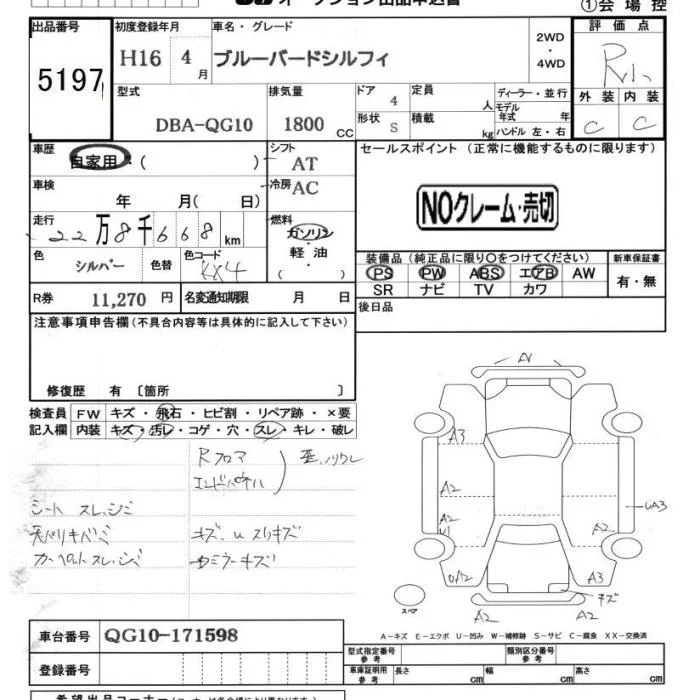 オークション出品申込書
①会場控
出品番号 初度登録年月 車名・グレード 2WD・4WD 評価点
5197 H16 4月 ブルーバードシルフィ R小
型式 排気量 ドア 定員 ディーラー・並行 外装 内装
DBA-QG10 1800cc 4 人 モデル年式 年 C C
形状 積載
S kg ハンドル 左・右
車歴 自家用・( ) シフト AT セールスポイント(正常に機能するものに限ります)
車検 年 月( 日) 冷房 AC NOクレーム・売切
走行 22万8千668km 燃料 ガソリン・軽油・( )
色 シルバー 色替 色コード KX4
装備品(純正品に限り○をつけてください) 新車保証書
PS PW ABS エアB AW 有・無
SR ナビ TV カワ
R券 11,270円 名変通知期限 月 日 後日品
注意事項申告欄(不具合内容等は具体的に記入して下さい)
修復歴 有〔箇所 〕
検査員記入欄 FW キズ・飛石・ヒビ割・リペア跡・×要
内装 キズ・汚レ・コゲ・穴・スレ・キレ・破レ
Rフロア
エンドパネル
シート スレ、シミ
天バリキバミ キズ、Uスリキズ
カーペットスレ、シミ
A3
A2
A2
U1
A2
UA3
A3
キズ
A2
A2
スペア
A-キズ E-エクボ U-凹み W-補修跡 S-サビ C-腐食 XX-交換済
車台番号 QG10-171598
登録番号
型式指定番号 参考 類別区分番号 参考
車庫証明用 参考 長さ cm 幅 cm 高さ cm
希望出品コーナー